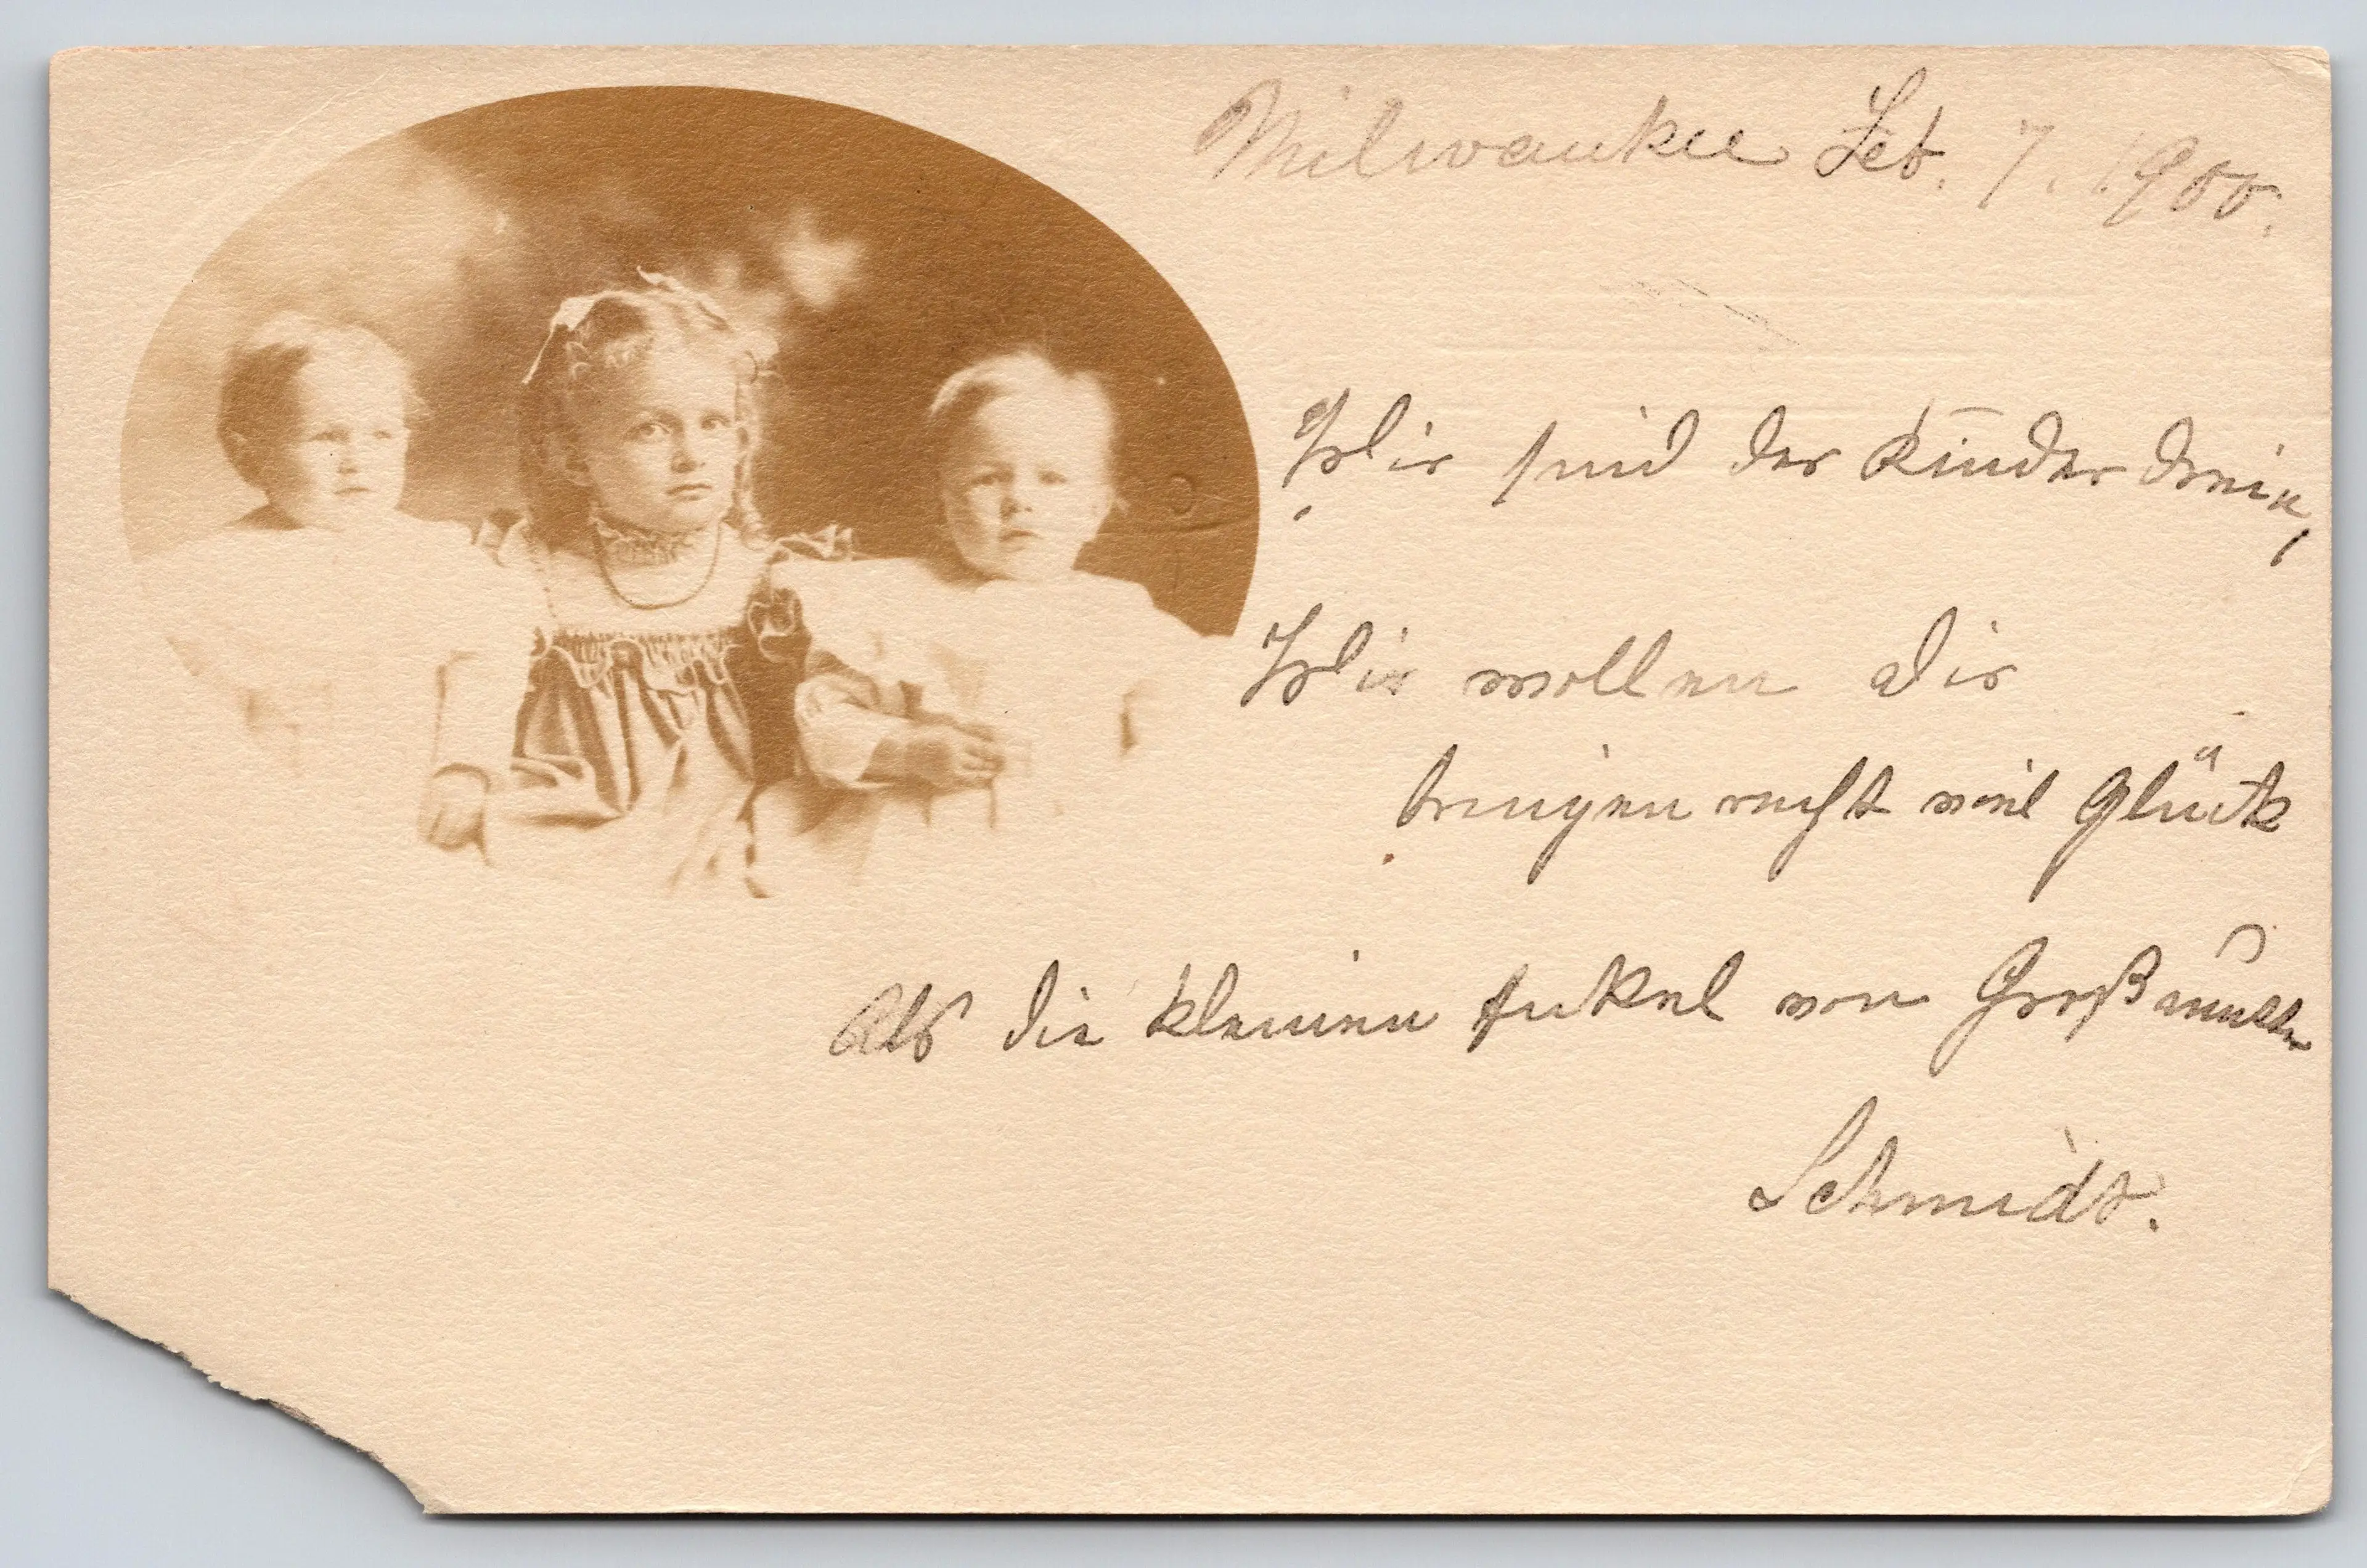 Milwaukee Feb. 7. 1900.
Wir sind der Kinder drein,
Wir wollen Dir
bringen recht viel Glück
Als die kleinen Enkel von Großmutter
Schmidt.